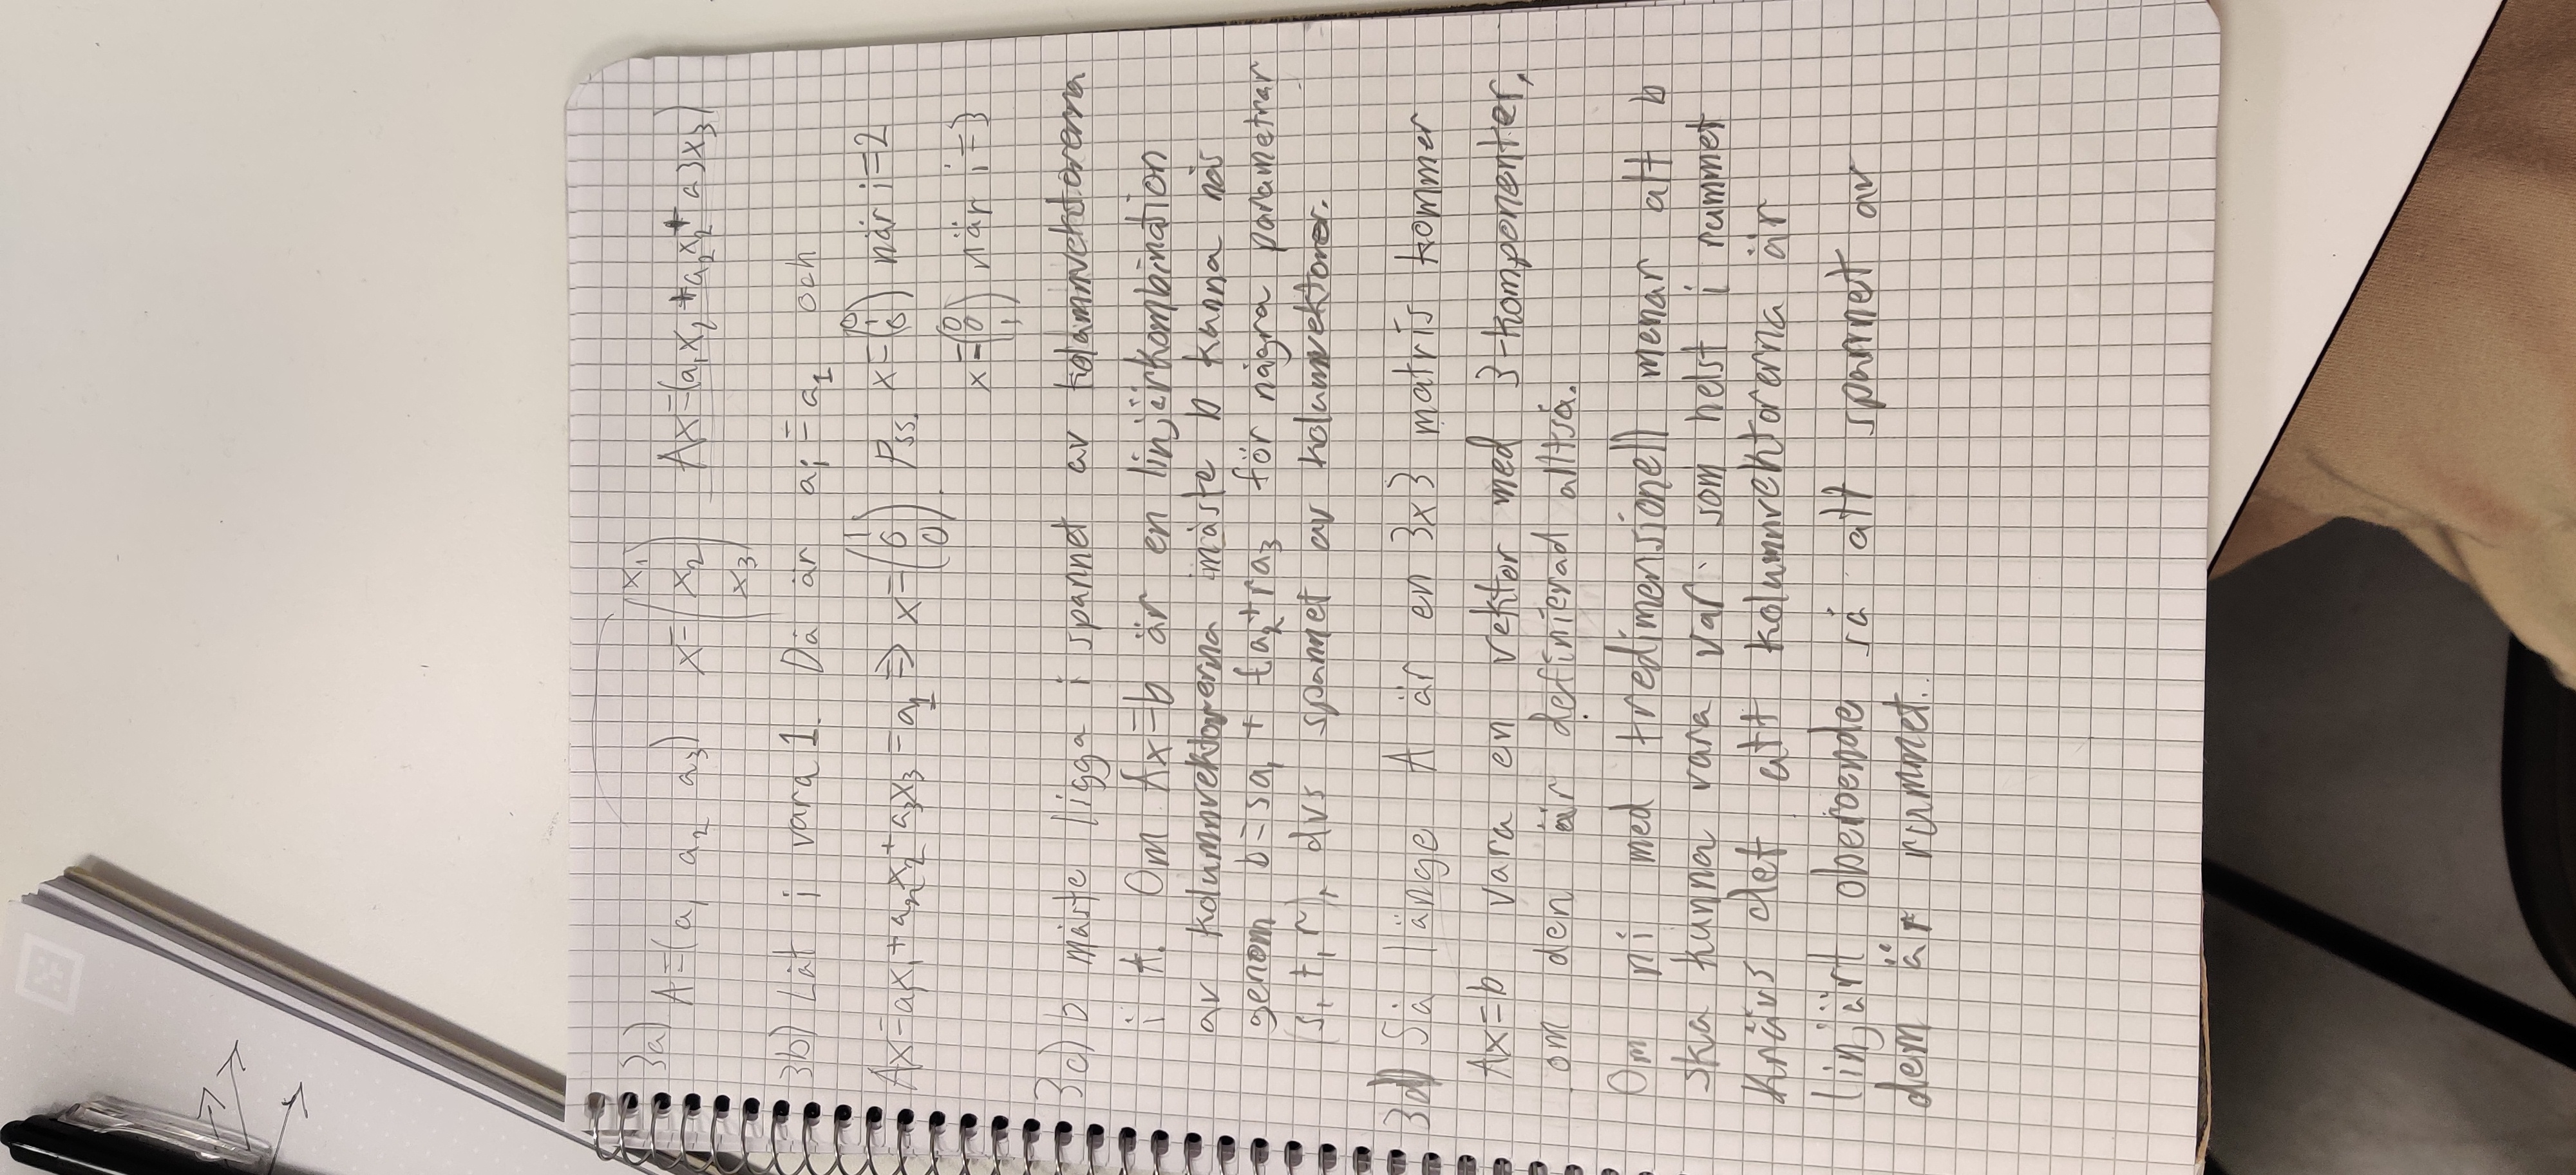 3a) A=(a₁ a₂ a₃) x=(x₁ x₂ x₃) Ax=(a₁x₂+a₂x₂+a3x₃)
3b) Låt i vara 1. Då är aᵢ=a₁ och
Ax=a₁x₁+a₂x₂+a₃x₃=a₁⇒x=(1 0 0). Pss. x=(0 1 0) när i=2
x=(0 0 1) när i=3
3c) b måste ligga i spannet av kolumnvektorerna
i A. Om Ax=b är en linjärkombination
av kolumnvektorerna måste b kunna nås
genom b=sa₁+ta₂+ra₃ för några parametrar
(s,t,r), dvs spannet av kolumvektorer.
3d) Så länge A är en 3x3 matris kommer
Ax=b vara en vektor med 3-komponenter,
om den är definierad alltså.
Om ni med tredimensionell menar att b
ska kunna vara var som helst i rummet
krävs det att kolumnvektorerna är
linjärt oberoende så att spannet av
dem är rummet.